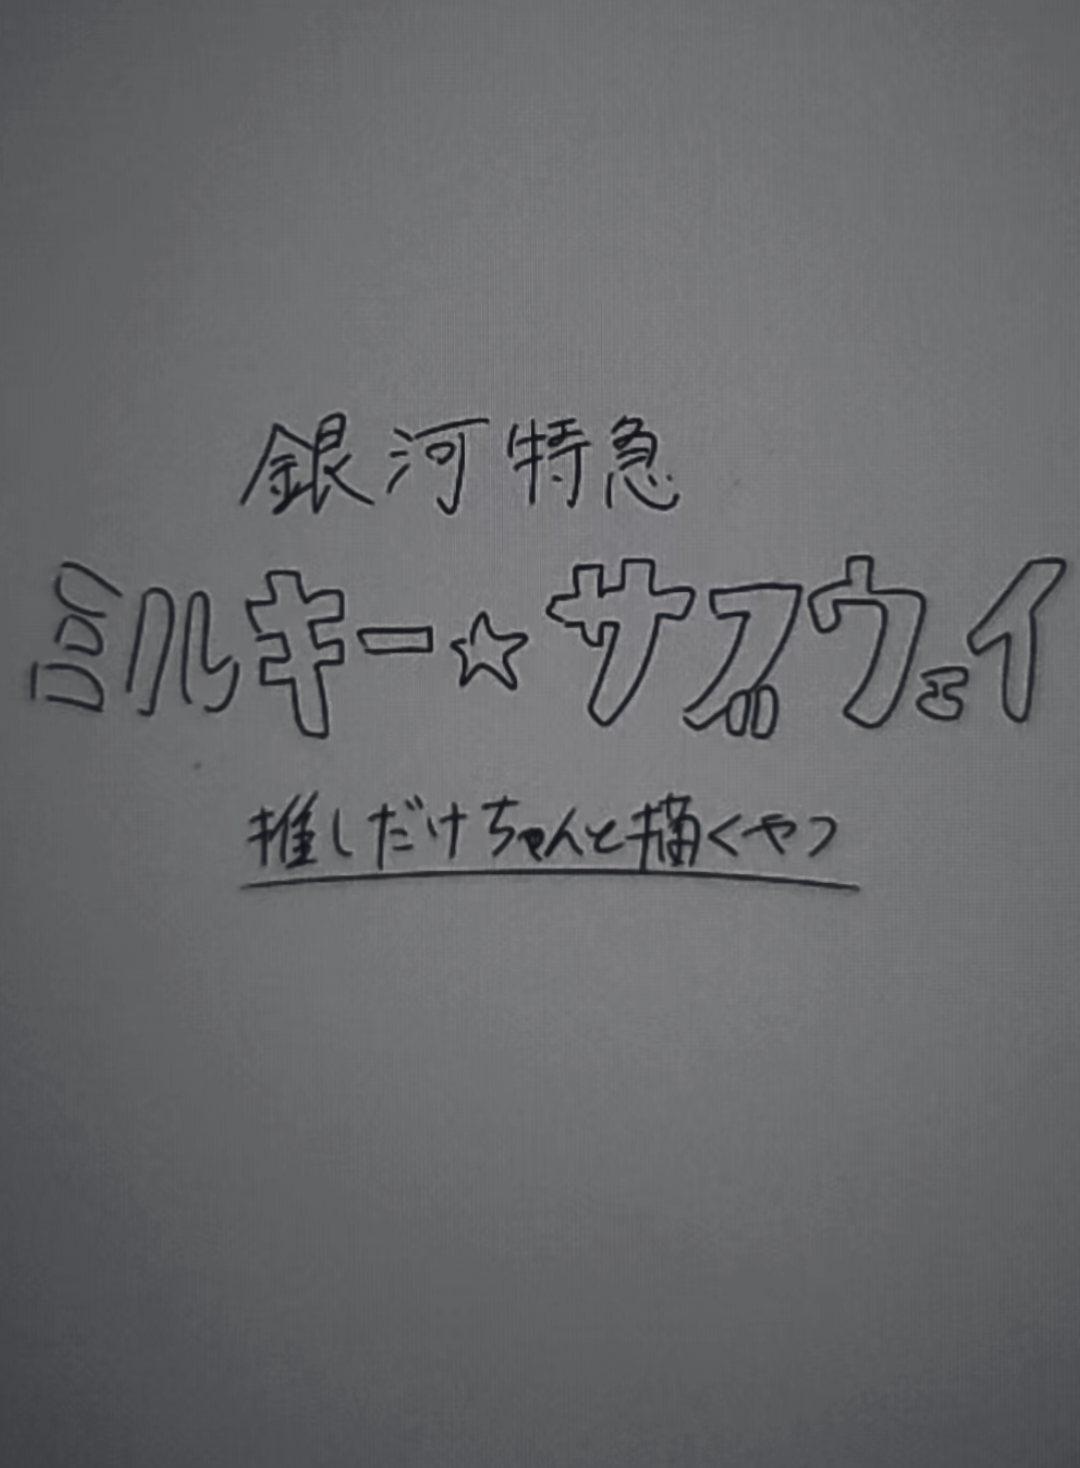 銀河特急
ミルキー☆サブウェイ
推しだけちゃんと描くやつ